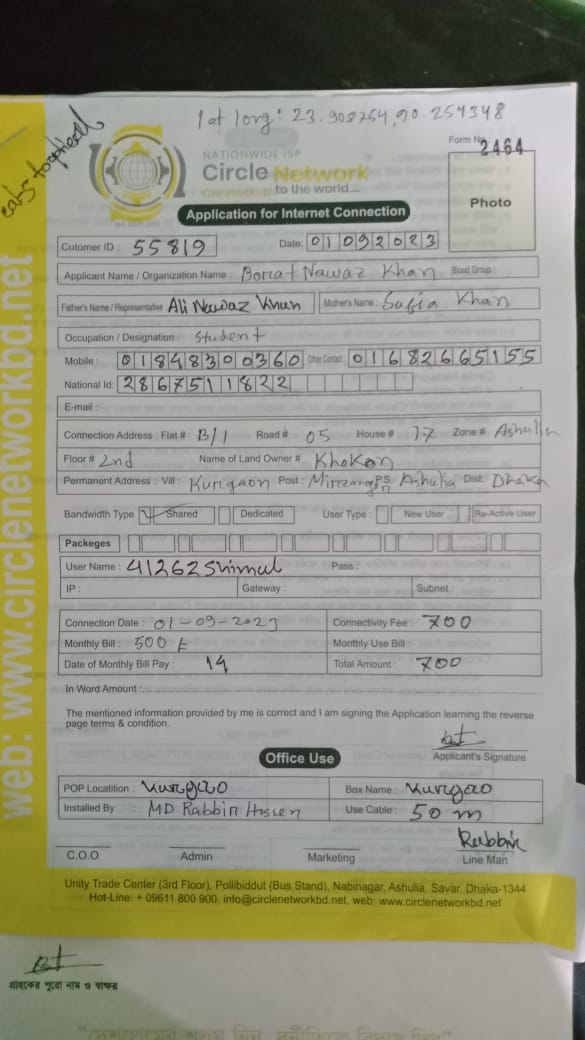 lat long: 23.908764,90.254348
NATIONWIDE ISP
Circle Network
Connecting to the world...
Form No 2464
Photo
Application for Internet Connection
Cutomer ID : 55819 Date: 01092023
Applicant Name / Organization Name : Borcat Nawaz Khan Blood Group :
Father's Name / Representative : Ali Nawaz Khan Mother's Name : Safia Khan
Occupation / Designation : Student
Mobile : 01848300360 Other Contact : 01682665155
National Id : 2867511822
E-mail :
Connection Address : Flat # B/1 Road # 05 House # 17 Zone # Ashulia
Floor # 2nd Name of Land Owner # Khokon
Permanent Address : Vill : Kurgaon Post : P.S. Ashulia Dist: Dhaka
Bandwidth Type Shared Dedicated User Type : New User Re-Active User
Packeges
User Name : 41262Shimul Pass :
IP : Gateway : Subnet :
Connection Date : 01-09-2023 Connectivity Fee : 700
Monthly Bill : 500 t Monthly Use Bill
Date of Monthly Bill Pay : 14 Total Amount : 700
In Word Amount :
The mentioned information provided by me is correct and I am signing the Application learning the reverse
page terms & condition.
Applicant's Signature
Office Use
POP Locatition : Kurgao Box Name : Kurgao
Installed By : MD Rabbin Hossen Use Cable : 50 m
Rabbin
C.O.O Admin Marketing Line Man
Unity Trade Center (3rd Floor), Pollibiddut (Bus Stand), Nabinagar, Ashulia, Savar, Dhaka-1344
Hot-Line: + 09611 800 900, info@circlenetworkbd.net, web: www.circlenetworkbd.net
web: www.circlenetworkbd.net
গ্রাহকের পুরো নাম ও স্বাক্ষর